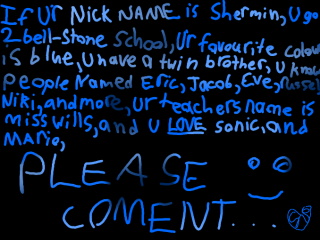 If Ur Nick NAME is Shermin, U go
2-bell-Stone School, Ur favourite colour
is blue, U have a twin brother, U know
People Named Eric, Jacob, Eve, russel
Niki, and more, Ur teachers name is
miss wills, and U LOVE sonic, and
Mario,
PLEASE
COMENT...